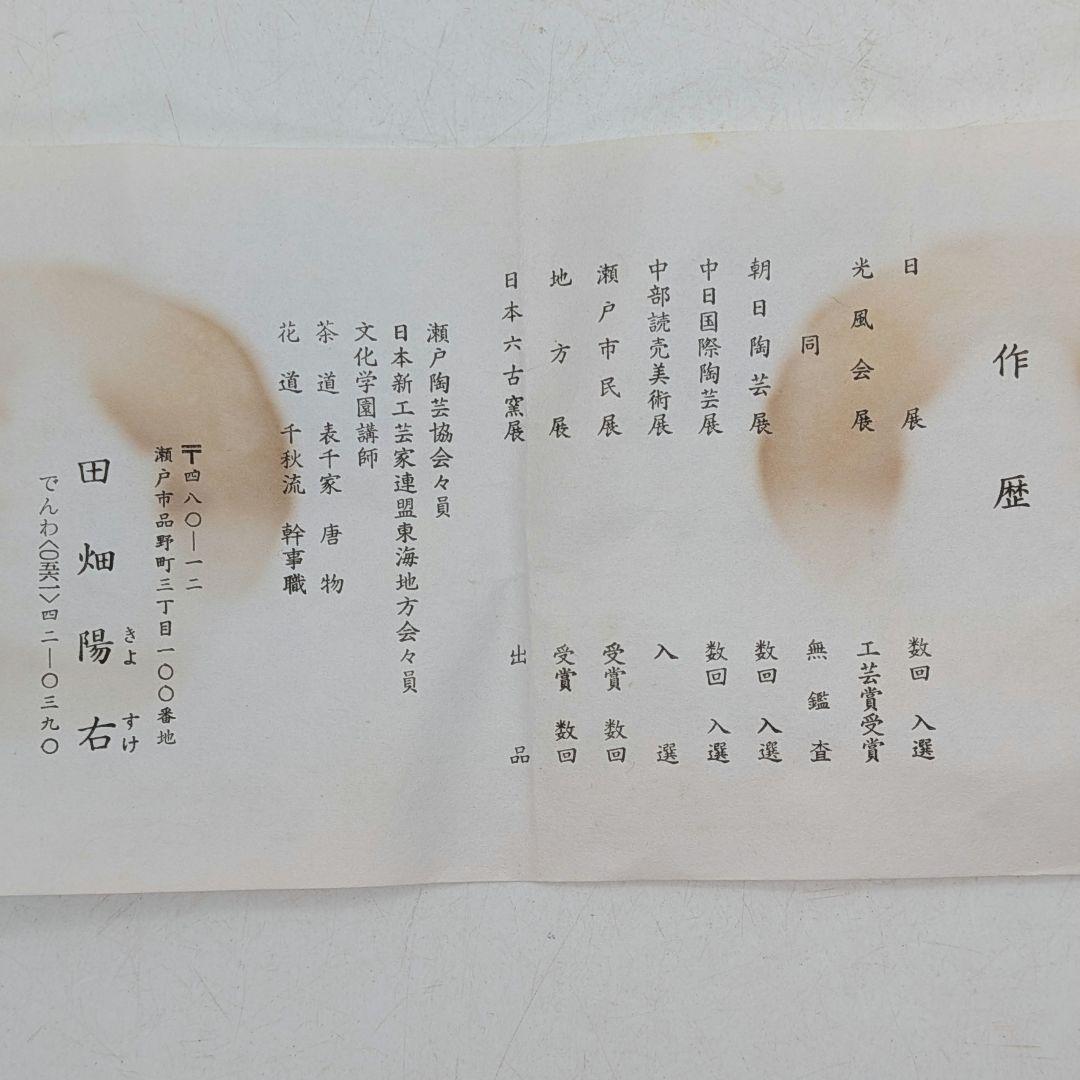 作歴
日展 数回入選
光風会展 工芸賞受賞
同 無鑑査
朝日陶芸展 数回入選
中日国際陶芸展 数回入選
中部読売美術展 入選
瀬戸市民展 受賞数回
地方展 受賞数回
日本六古窯展 出品
瀬戸陶芸協会々員
日本新工芸家連盟東海地方会々員
文化学園講師
茶道 表千家 唐物
花道 千秋流 幹事職
〒四八〇―一二
瀬戸市品野町三丁目一〇〇番地
田畑陽右
きよすけ
でんわ〈〇五六一〉四二―〇三九〇